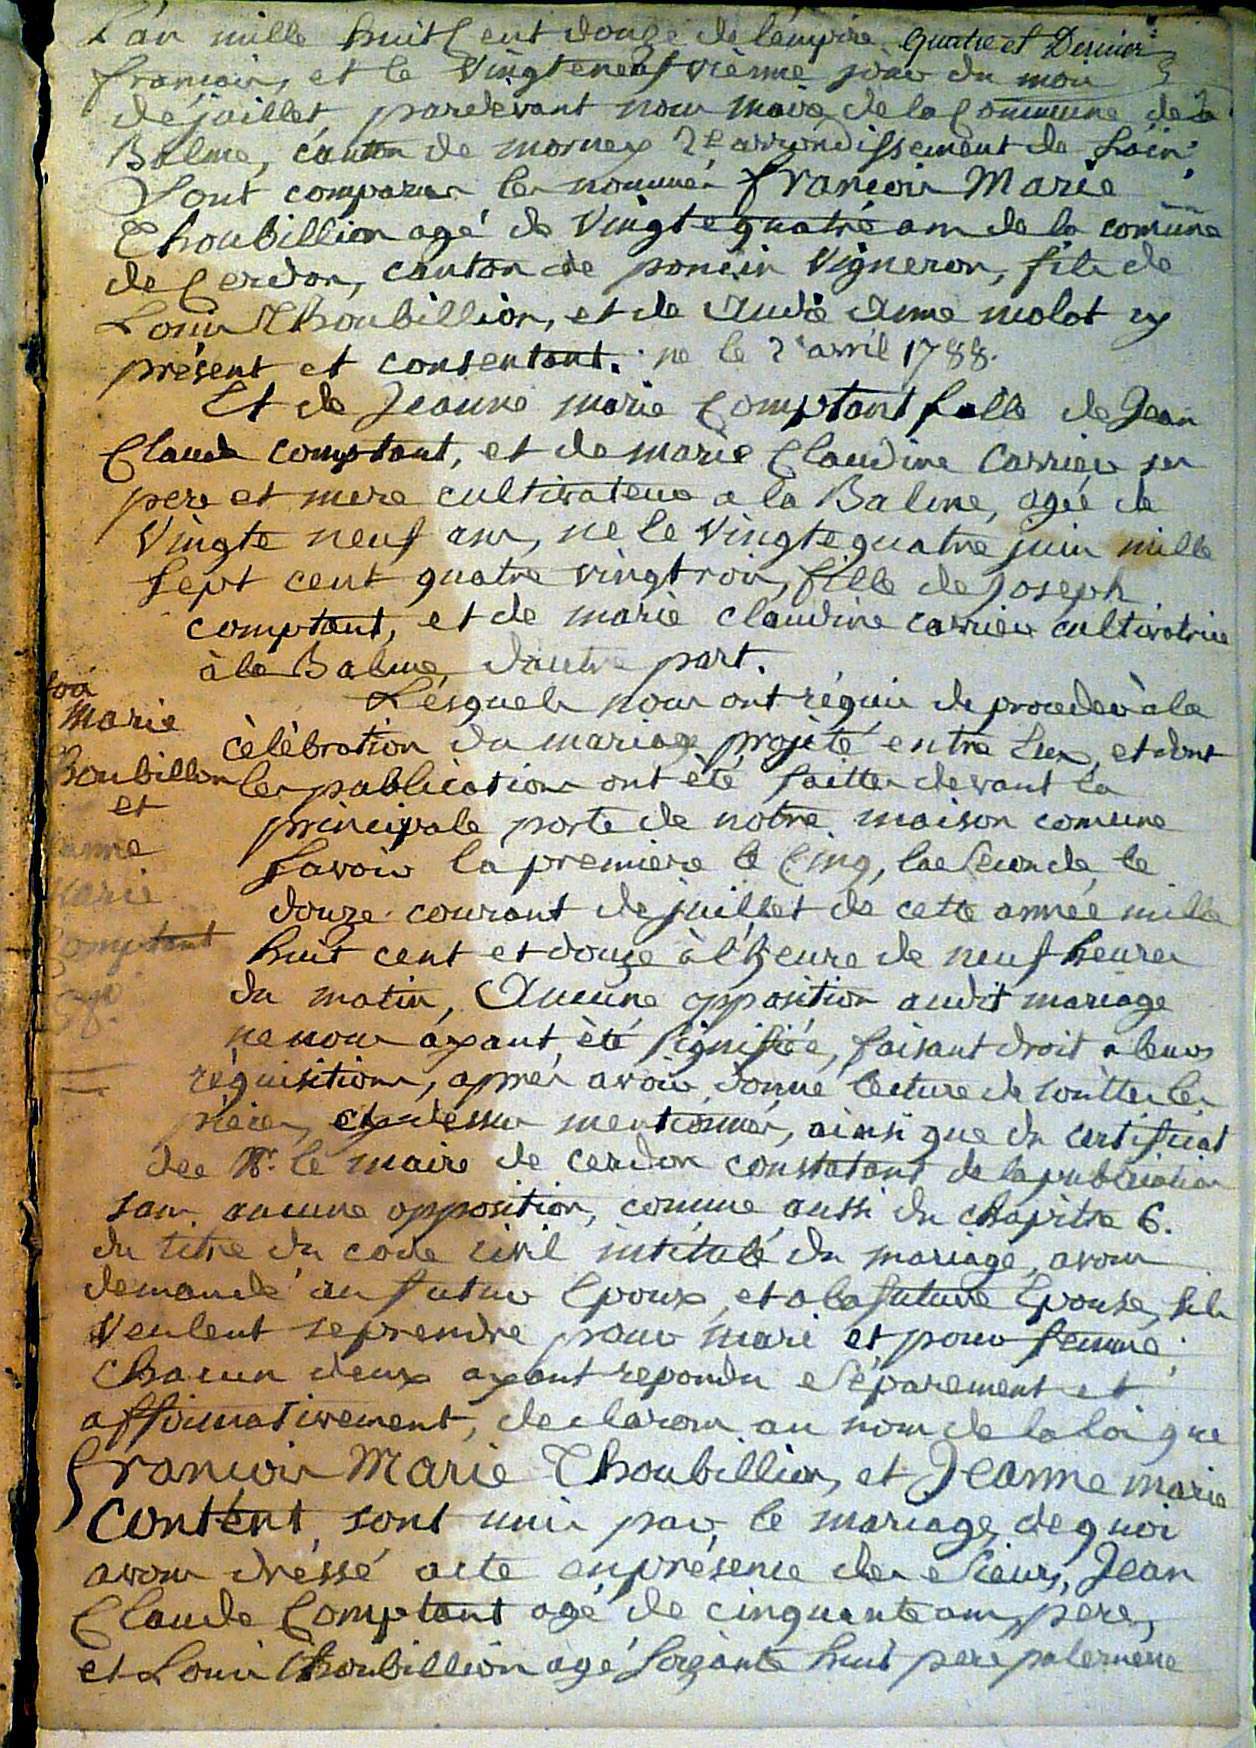 L'an mille huit Cent douze de l'empire quatre et Dernier
francois, et le Vingteneufvième jour du moi
de juillet, pardevant nous maire de la Commune de La
Balme, canton de mornex 2e arrondissement de Lain
Sont comparus les nommés francois Marie
Thoubillion agé de Vingte quatre ans de la comune
de Cerdon, canton de poncin Vigneron, fils de
Louis Thoubillion, et de Anne molot cy
présent et consentant. ne le 2e avril 1788.
Et de Jeanne marie Comptant fille de Jean
Claude comptant, et de marie Claudine Carrier ses
pere et mere cultivateur a la Balme, agée de
Vingte neuf ans, ne le Vingte quatre juin mille
sept cent quatre vingtrois, fille de joseph
comptant, et de marie claudine carrier cultivatrice
à la Balme, d'autre part.
Lésquels nous ont réquis de proceder à la
cèlèbration du mariage projété entre Eux, et dont
les publications ont èté faittes devant la
principale porte de notre maison comune
savoir la premiere le Cinq, la Seconde le
douze courant de juillet de cette année mille
huit cent et douze à l'heure de neuf heures
du matin, Aucune opposition audit mariage
ne nous áyant èté signifiée, faisant droit a leurs
réquisitions, aprés avoir donné lecture de touttes les
piéces, cy dessus mentionnés, ainsi que du certificat
de Mr. le maire de cerdon constatant de la publication
sans aucune opposition, comme aussi du chapitre 6.
du titre du code civil intitulé du mariage, avons
demandé au futur Epoux, et a la future Epouse, sils
Veulent se prendre pour mari et pour femme,
Chacun deux ayant repondu Séparement et
affirmativement, declarons au nom de la loi que
francois Marie Thoubillion, et Jeanne marie
contént, sont unis par le mariage, de quoi
avons dréssé acte enprésence des Sieurs, Jean
Claude Comptant agé de cinquante ans, pere,
et Louis Thoubillion agé Soixante huit pere
Marie
Thoubillon
et
Jeanne
Marie
Comptant